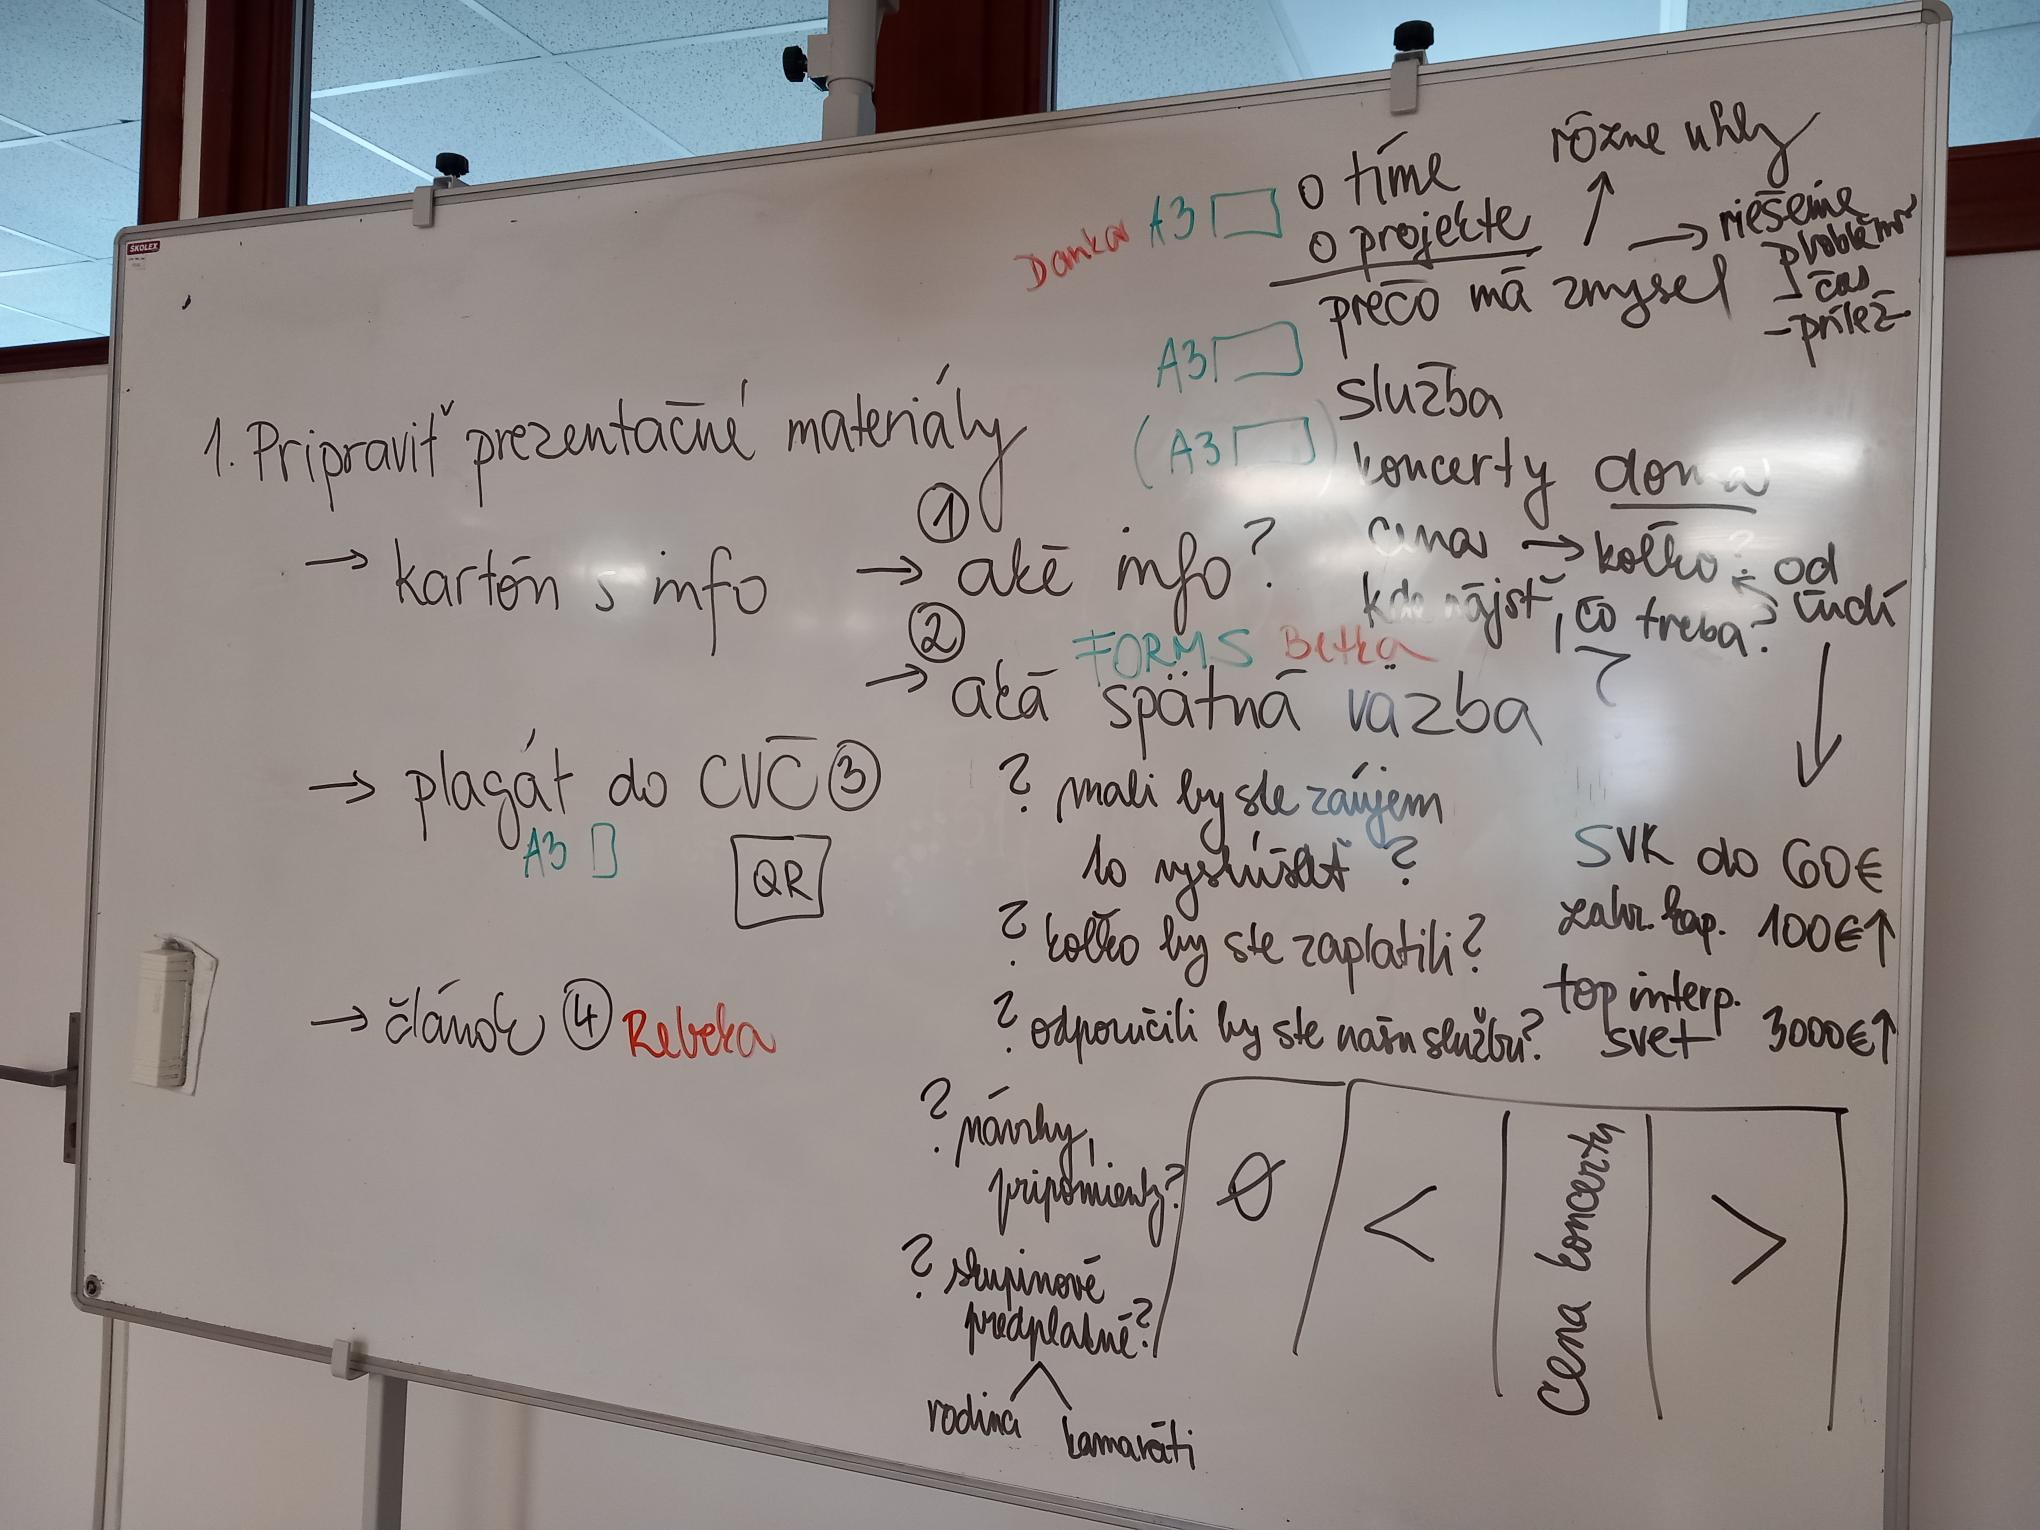 SKOLEX
1. Pripraviť prezentačné materiály
→ kartón s info
→ ① aké info?
Danka A3
o tíme
o projekte
rôzne uhly
→ riešenie
problémov
čas
- príлež-
prečo má zmysel
A3
služba
(A3)
koncerty doma
cena → koľko? od
ľudí
kde nájsť, čo treba?
②
FORMS Betka
→ aká spätná väzba ?
→ plagát do CVČ ③
A3
QR
→ článok ④ Rebeka
? mali by ste záujem
to vyskúšať ?
? koľko by ste zaplatili?
? odporučili by ste našu službu?
? návrhy,
pripomienky?
? skupinové
predplatné?
rodina
kamaráti
SVK do 60€
zahr. kap. 100€↑
top interp.
svet 3000€↑
Ø
<
cena koncertu
>